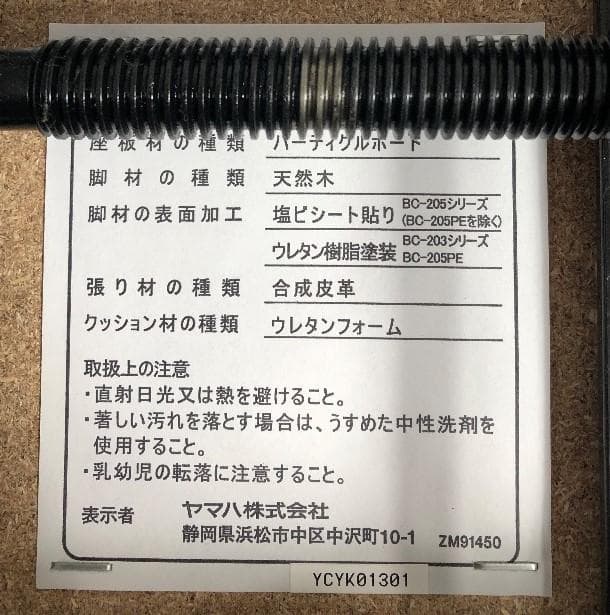 座板材の種類 パーティクルボード
脚材の種類 天然木
脚材の表面加工 塩ビシート貼り BC-205シリーズ
(BC-205PEを除く)
ウレタン樹脂塗装 BC-203シリーズ
BC-205PE
張り材の種類 合成皮革
クッション材の種類 ウレタンフォーム
取扱上の注意
・直射日光又は熱を避けること。
・著しい汚れを落とす場合は、うすめた中性洗剤を
使用すること。
・乳幼児の転落に注意すること。
表示者 ヤマハ株式会社
静岡県浜松市中区中沢町10-1 ZM91450
YCYK01301